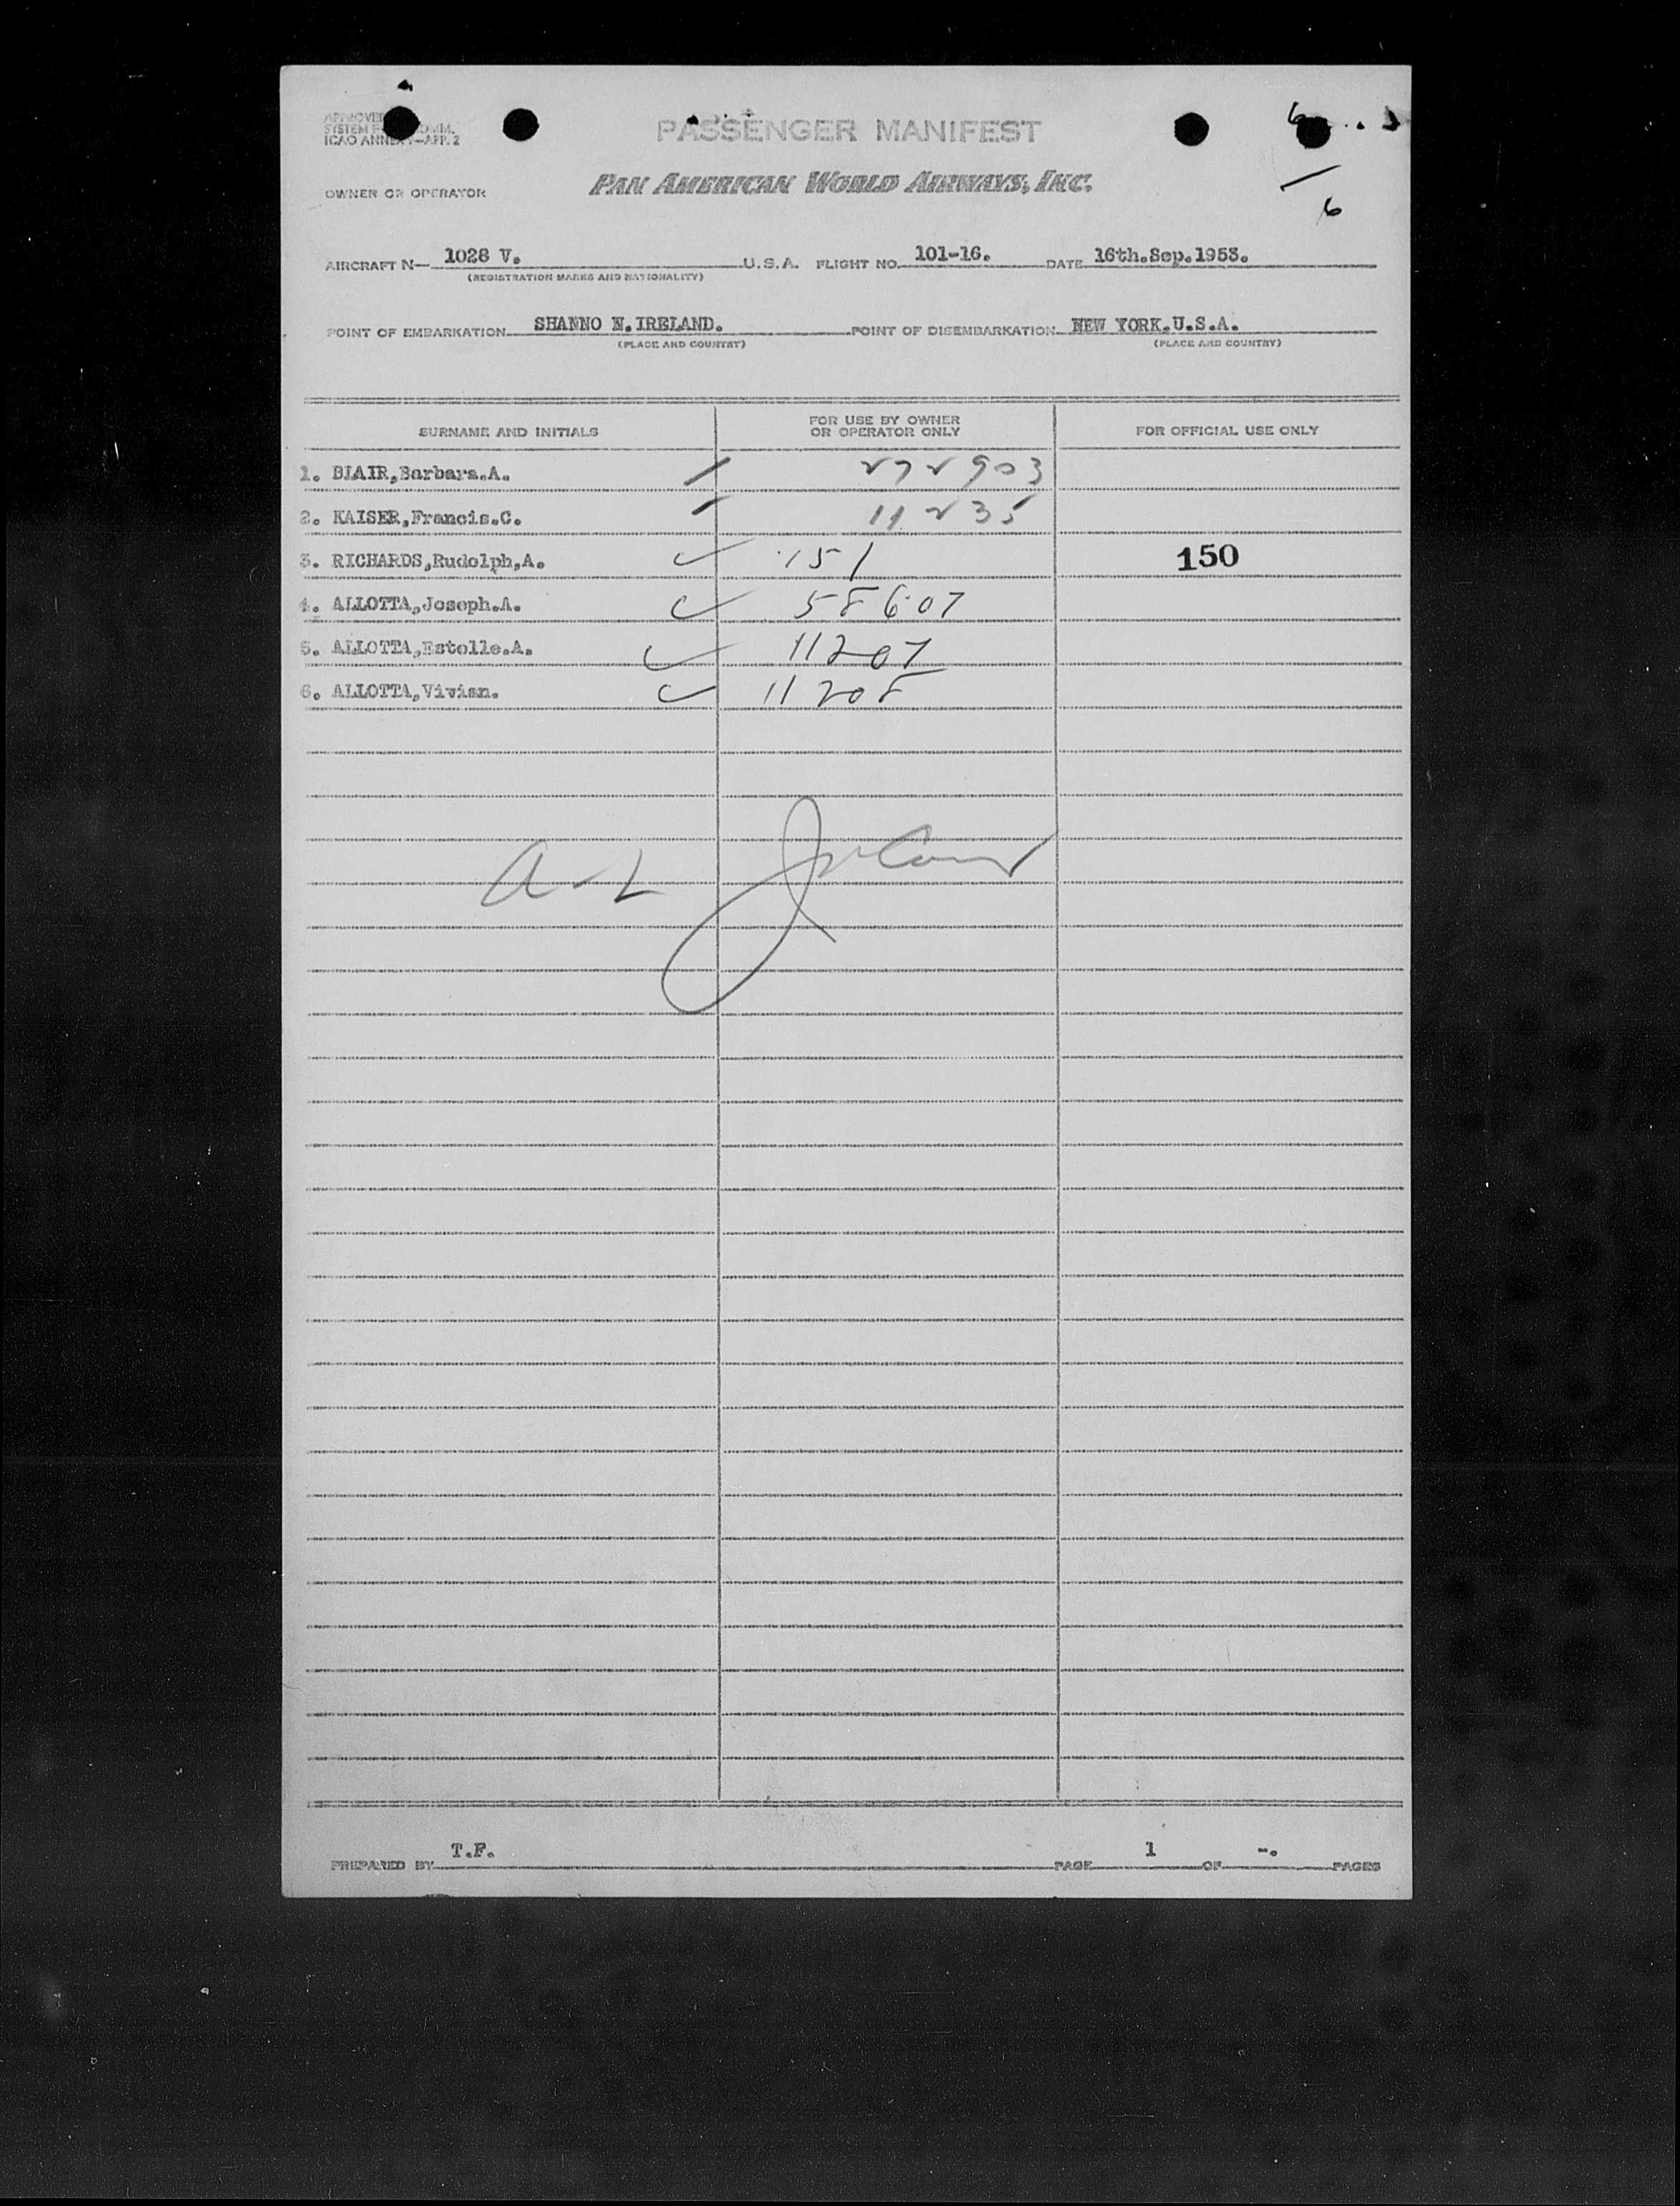 PASSENGER MANIFEST
ICAO ANNEX 9—APP. 2
OWNER OR OPERATOR
PAN AMERICAN WORLD AIRWAYS, INC.
6
AIRCRAFT N— 1028 V. U.S.A. FLIGHT NO. 101-16. DATE 16th.Sep.1953.
(REGISTRATION MARKS AND NATIONALITY)
POINT OF EMBARKATION SHANNO N.IRELAND. POINT OF DISEMBARKATION NEW YORK.U.S.A.
(PLACE AND COUNTRY) (PLACE AND COUNTRY)
SURNAME AND INITIALS FOR USE BY OWNER OR OPERATOR ONLY FOR OFFICIAL USE ONLY
1. BLAIR,Barbara.A. 272903
2. KAISER,Francis.C. 11235
3. RICHARDS,Rudolph,A. 151 150
4. ALLOTTA,Joseph.A. 58607
5. ALLOTTA,Estelle.A. 11207
6. ALLOTTA,Vivian. 11208
PREPARED BY T.F. PAGE 1 OF -. PAGES